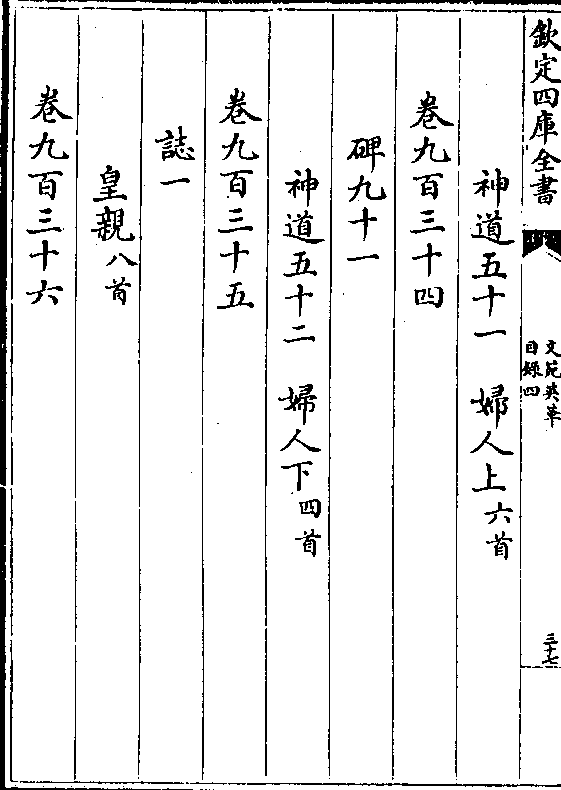 欽定四庫全書
文苑英華
目錄四
三十七
神道五十一　婦人上六首
卷九百三十四
碑九十一
神道五十二　婦人下四首
卷九百三十五
誌一
皇親八首
卷九百三十六